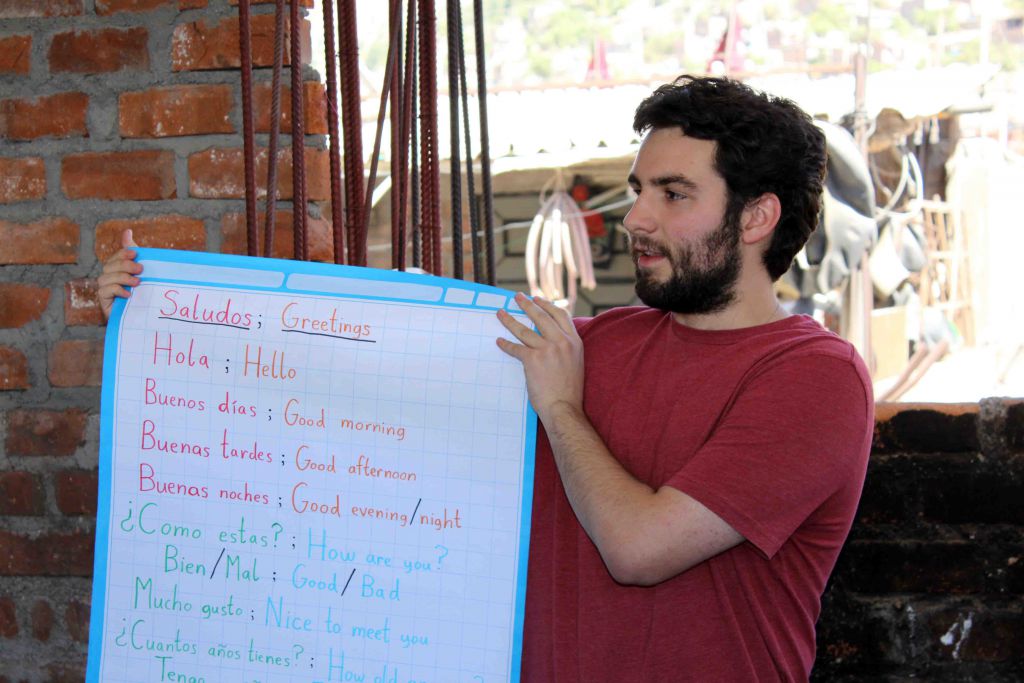 Saludos ; Greetings
Hola ; Hello
Buenos días ; Good morning
Buenas tardes ; Good afternoon
Buenas noches ; Good evening/night
¿Como estas? ; How are you?
Bien/Mal ; Good/Bad
Mucho gusto ; Nice to meet you
¿Cuantos años tienes? ; How old
Tengo